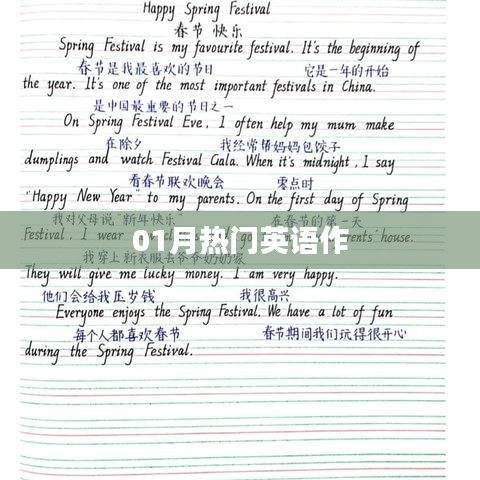 Happy Spring Festival
春节 快乐
Spring Festival is my favourite festival. It's the beginning of
春节是我最喜欢的节日 它是一年的开始
the year. It's one of the most important festivals in China.
是中国最重要的节日之一
On Spring Festival Eve, I often help my mum make
在除夕 我经常帮妈妈包饺子
dumplings and watch Festival Gala. When it's midnight, I say
看春节联欢晚会 零点时
"Happy New Year" to my parents. On the first day of Spring
我对父母说"新年快乐" 在春节的第一天
Festival, I wear parents' house.
01月热门英语作
我穿上新衣服去爷爷奶奶家
They will give me lucky money. I am very happy.
他们会给我压岁钱 我很高兴
Everyone enjoys the Spring Festival. We have a lot of fun
每个人都喜欢春节 春节期间我们玩得很开心
during the Spring Festival.